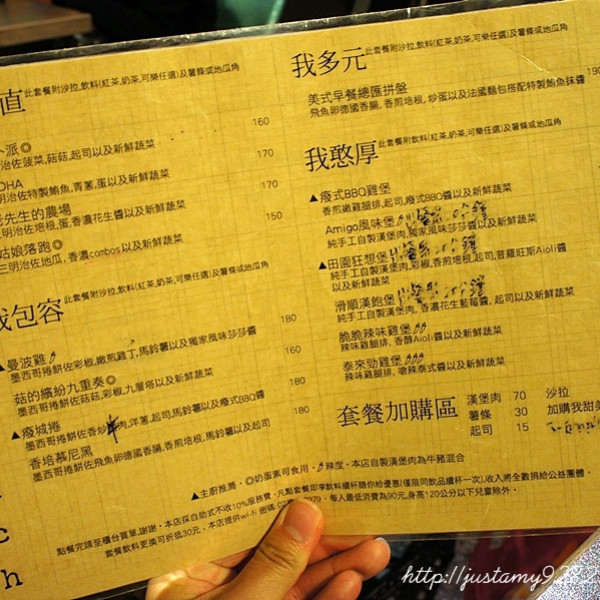 直 此套餐附沙拉,飲料(紅茶,奶茶,可樂任選)及薯條或地瓜角
派◎ 160
治佐菠菜,菇菇,起司以及新鮮蔬菜
OHA 170
明治佐特製鮪魚,青蔥,蛋以及新鮮蔬菜
先生的農場 170
明治佐培根,蛋,香濃花生醬以及新鮮蔬菜
姑娘落跑◎ 150
三明治佐地瓜,香濃combos以及新鮮蔬菜
我包容 此套餐附沙拉,飲料(紅茶,奶茶,可樂任選)及薯條或地瓜角
▲曼波雞 180
墨西哥捲餅佐彩椒,嫩煎雞丁,馬鈴薯以及獨家風味莎莎醬
菇的繽紛九重奏◎ 160
墨西哥捲餅佐菇菇,彩椒,九層塔以及新鮮蔬菜
▲廢城捲 180
墨西哥捲餅佐香炒牛肉,洋蔥,起司,馬鈴薯以及廢式BBQ醬
香培慕尼黑 180
墨西哥捲餅佐飛魚卵德國香腸,香煎培根,馬鈴薯以及起司
c
h
我多元 此套餐附沙拉,飲料(紅茶,奶茶,可樂任選)及薯條或地瓜角
美式早餐總匯拼盤 190
飛魚卵德國香腸,香煎培根,炒蛋以及法國麵包搭配特製鮪魚抹醬
我憨厚 此套餐附飲料(紅茶,奶茶,可樂任選)及薯條或地瓜角
▲廢式BBQ雞堡
香煎嫩雞腿排,起司,廢式BBQ醬以及新鮮蔬菜
Amigo風味堡
純手工自製漢堡肉,獨家風味莎莎醬以及新鮮蔬菜
▲田園狂想堡
純手工自製漢堡肉,彩椒,香煎培根,起司,普羅旺斯Aioli醬
以及新鮮蔬菜
滑順漢飽堡
純手工自製漢堡肉,香濃花生藍莓醬,起司以及新鮮蔬菜
脆脆辣味雞堡
辣味雞腿排,香醇Aioli醬以及新鮮蔬菜
泰來勁雞堡
辣味雞腿排,嗆辣泰式醬以及新鮮蔬菜
套餐加購區 漢堡肉 70 沙拉
薯條 30 加購我甜美
起司 15
▲主廚推薦。◎奶蛋素可食用。辣度。本店自製漢堡肉為牛豬混合
點餐完請至櫃台買單,謝謝。本店採自助式不收10%服務費。凡點套餐即享飲料續杯隨你給優惠(僅限同飲品續杯一次),收入將全數捐給公益團體。
套餐飲料更換可折抵30元。本店提供wi-fi 密碼: 979。每人最低消費為90元,身高120公分以下兒童除外。